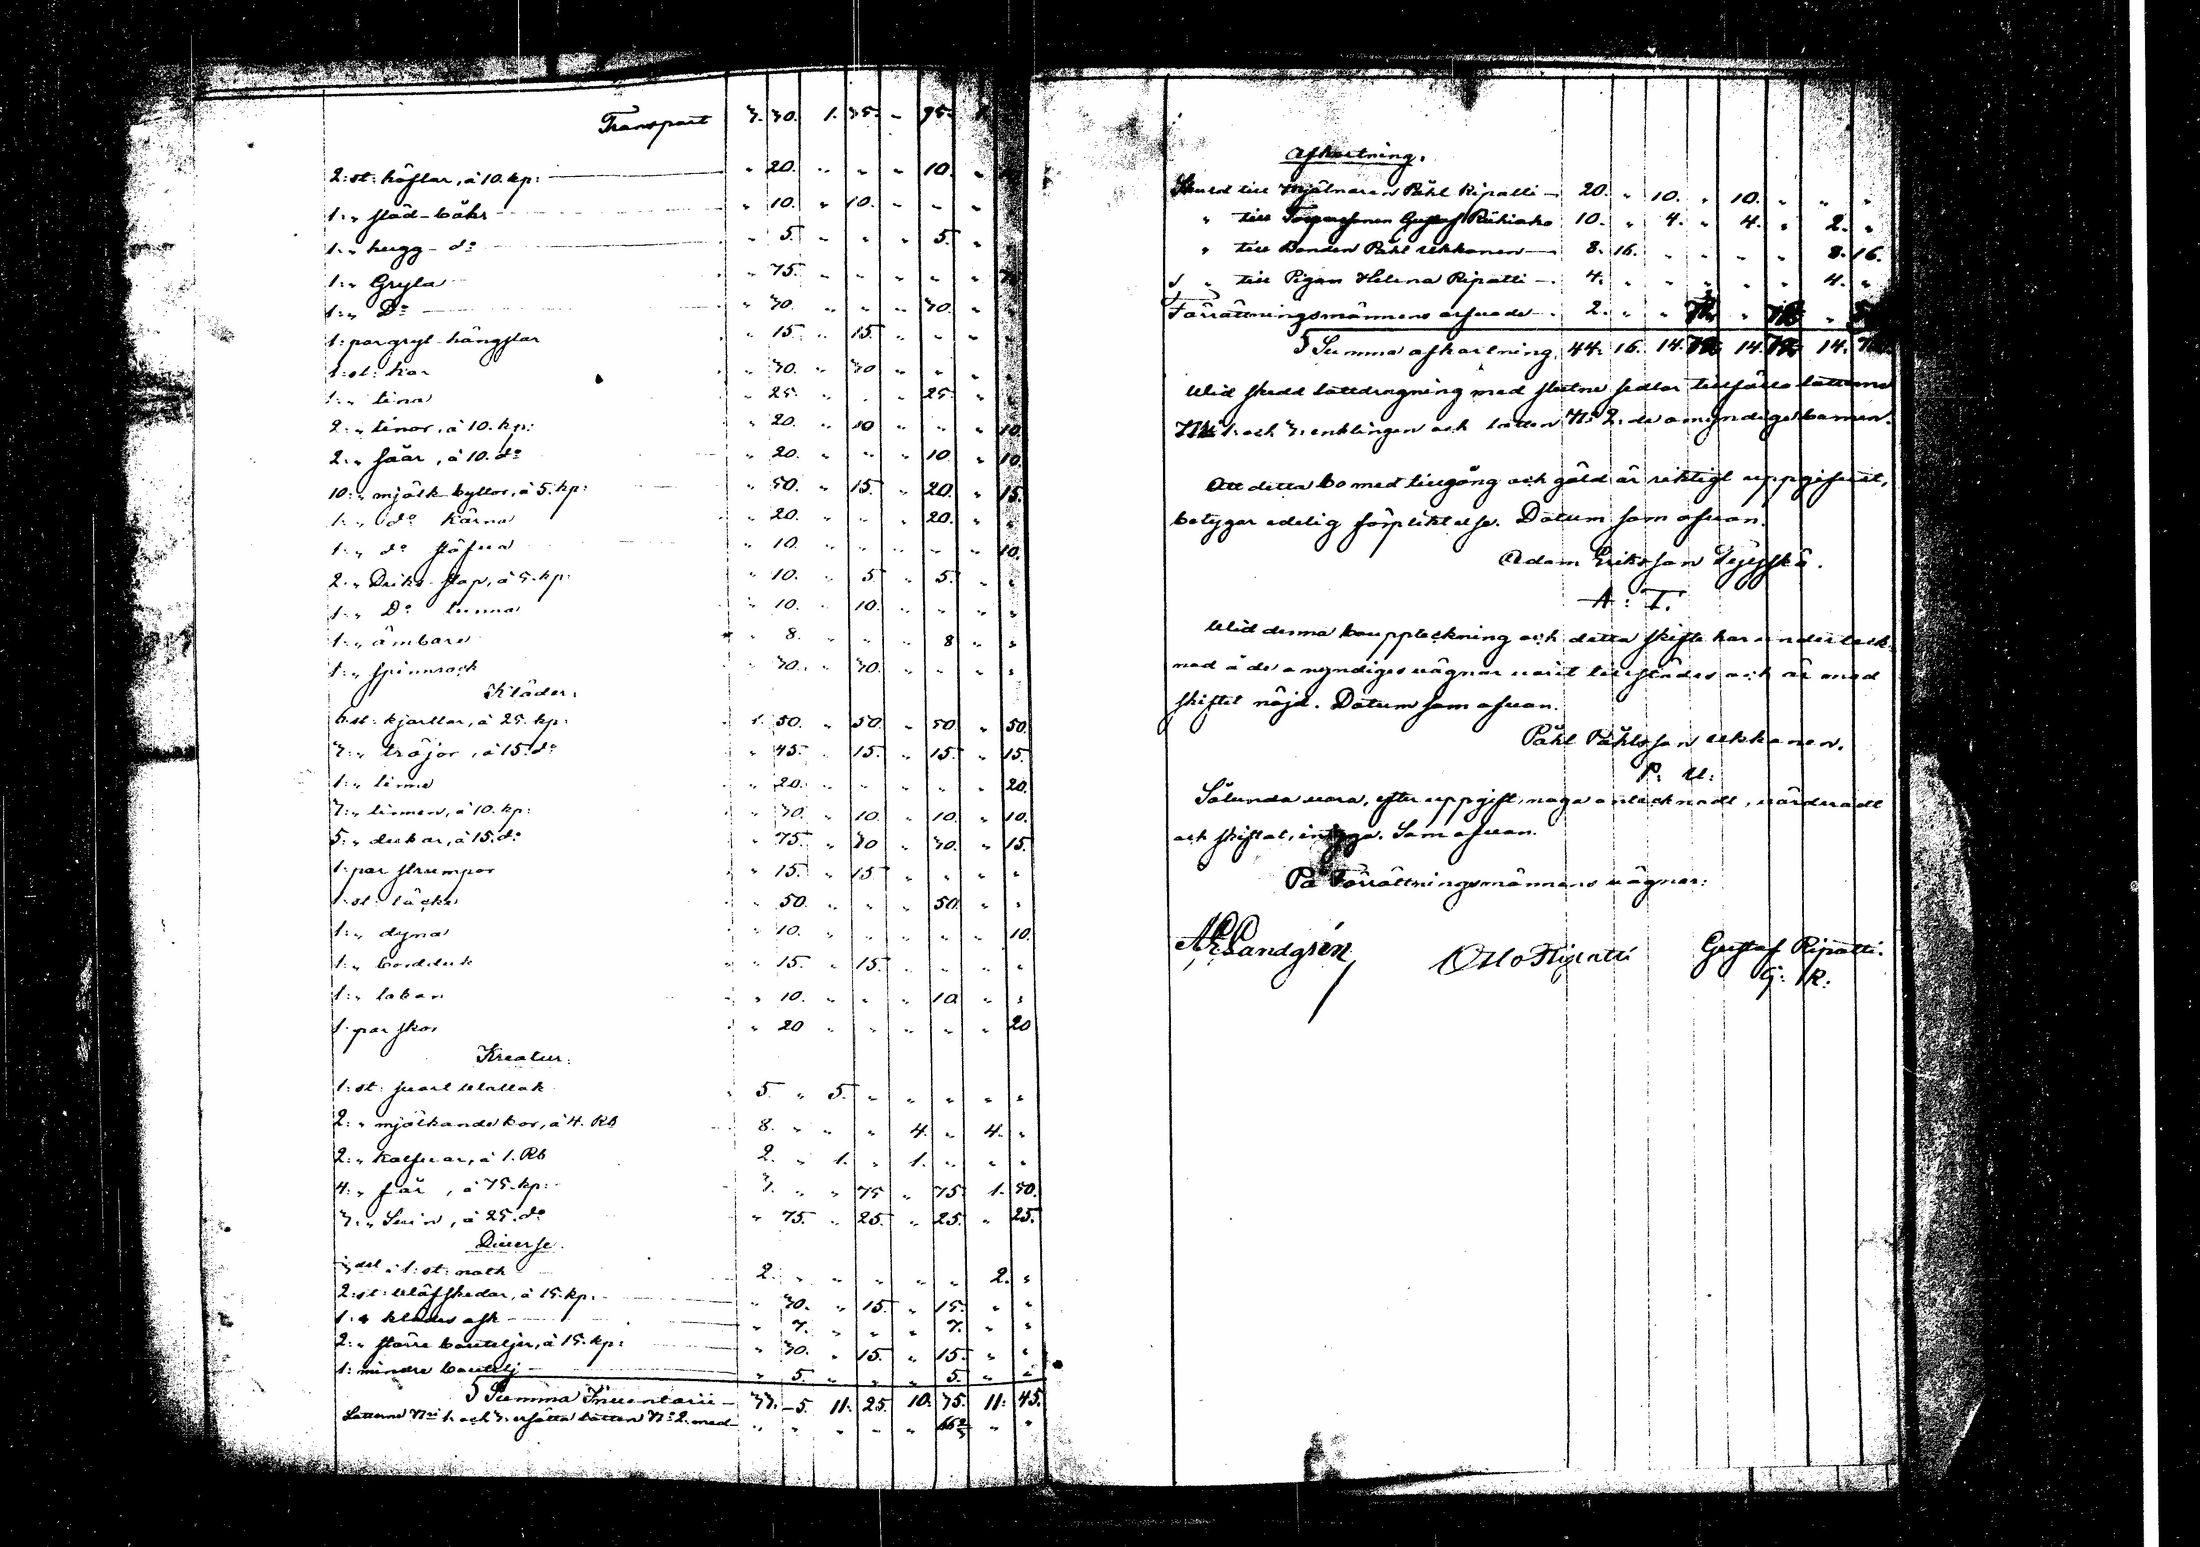 Transport 3. 30. 1. 35. " 95. 1.
2: st: höflar, á 10. kp: " 20. " " " 10. "
1: " städ-båhr " 10. " 10. " " " "
1: " hugg- do " 5. " " " 5. "
1: " Gryta " 75. " " " " "
1: " Do " 30. " " " 30. " "
1: par gryt-hängslar " 15. " 15. " " " "
1: st: kar " 30. " 30 " " " "
1: " tina " 25. " " " 25. " "
2: " tinor, á 10. kp: " 20. " 10 " " " 10.
2: " såar, á 10. do " 20. " " " 10. " 10.
10: " mjölk-byttor, á 5. kp: " 50. " 15. " 20. " 15.
1: " do kärna " 20. " " " 20. " "
1: " do stäfva " 10. " " " " " 10.
2: " Driks-stop, á 5. kp: " 10. " 5. " 5. " "
1: " Do tunna " 10. " 10. " " " "
1: " ämbare " 8. " " " 8 " "
1: " spinnrock " 30. " 30. " " " "
Kläder:
6 st: kjortlar, á 25. kp: 1. 50. " 50. " 50. " 50.
3: " tröjor, á 15. do " 45. " 15. " 15. " 15.
1: " linne " 20. " " " " " 20.
3: " linnen, á 10. kp: " 30. " 10. " 10. " 10.
5: " dukar, á 15. do " 75. " 30 " 30. " 15.
1: par strumpor " 15. " 15 " " " "
1: st: täcke " 50. " " " 50. " "
1: " dyna " 10. " " " " " 10.
1: " bordduk " 15. " 15. " " " "
1: " lakan " 10. " " " 10 " "
1: par skor " 20 " " " " " 20
Kreatur:
1: st: svart Wallak 5. " 5. " " " " "
2: " mjölkande kor, á 4. Rb 8. " " " 4. " 4. "
2: " kalfvar, á 1. Rb 2. " 1. " 1. " " "
4: " får, á 75. kp: 3. " " 75 " 75 1. 50.
3: " Svin, á 25. do " 75. " 25. " 25. " 25.
Diverse.
del i 1: st: noth 2. " " " " " 2. "
2: st: Wäfskedar, á 15. kp: " 30. " 15. " 15. " "
1: " klädes ask " 7. " " " 7. " "
2: " större bouteljer, á 15. kp: " 30. " 15. " 15. " "
1: mindre boutelj " 5. " " " 5. " "
Summa Inventarii 33. 5. 11. 25. 10. 35. 11. 45.
Lotterne Nris 1. och 3. ersätta lotten No 2. med " " " " "
Afkortning.
Skuld till Mjölnaren Påhl Ripatti 20. " 10. " 10. " " "
" till Torparesonen Gustaf 10. " 4. " 4. " 2. "
" till Bonden Påhl Ukkonen 8. 16. " " " " 8. 16.
" till Pigan Helena Ripatti 4. " " " " " 4. "
Förrättningsmännens arfvode 2. " "
Summa afkortning 44. 16. 14. 14. 14.
Wid skedd lottdragning med slutne sedlar tillföllo lotterne
Nris 1. och 3. enklingen och lotten No 2. de omyndige barnen.
Att detta bo med tillgång och gäld är riktigt uppgifvet,
betygar edelig förpliktelse. Datum som ofvan.
Adam Eriksson
A: T.
Wid denna bouppteckning och detta skifte har underteck-
nad å de omyndiges vägnar varit tillstädes och är med
skiftet nöjd. Datum som ofvan.
Påhl Påhlsson Ukkonen.
P: U:
Sålunda vara, efter uppgift, noga antecknadt, värderadt
och skiftat, intyga. Som ofvan.
På Förrättningsmännens vägnar:
Sandgrén Otto Ripatti Gustaf Ripatti.
G: R: